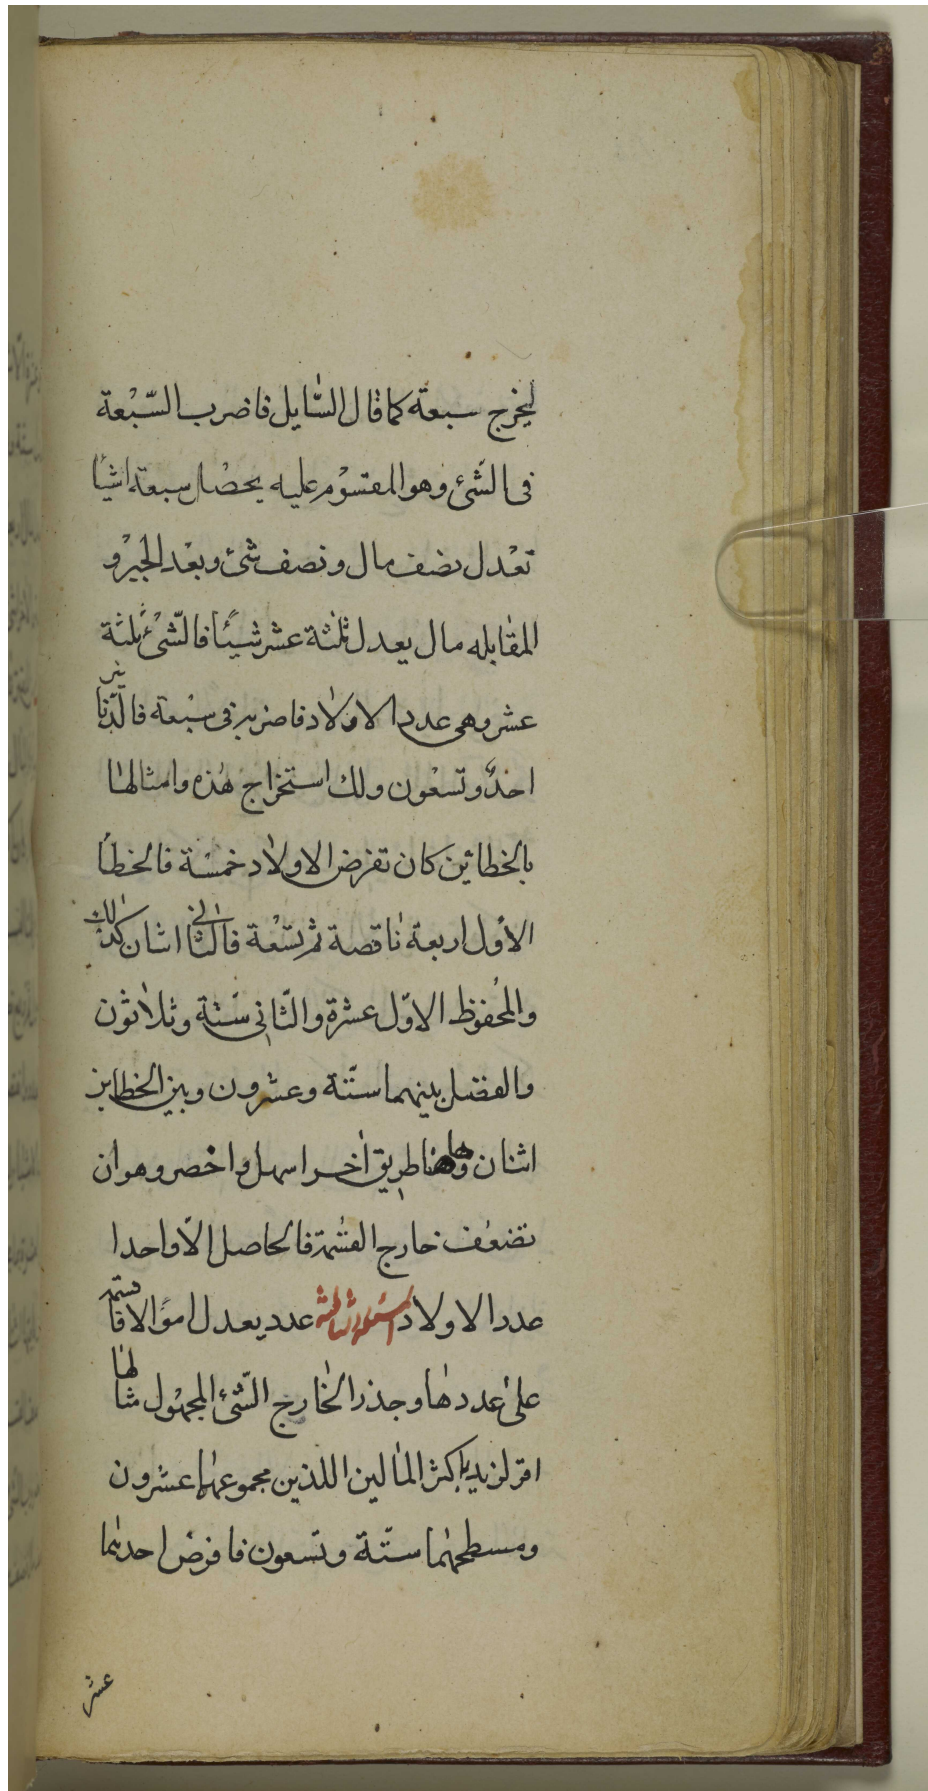 ليخرج سبعة كما قال السّايل فاضرب السّبْعة
فى الشّئ وهو المقسوْم عليه يحصْل سبعة اشيًا
تعْدل نصف مال ونصف شئ وبعْد الجبْر و
المقابله مال يعدل ثلثة عشر شيئًا فالشّئ ثلثة
عشر وهى عدد الاولاد فاضربه فى سبْعة فالدّنانير
احدٌ وتسعْون ولك استخراج هذه وامثالها
بالخطائين كان تفرض الاولاد خمسْة فالخطأ
الأول اربعة ناقصة ثم تسْعة فالثانى اثنان كذلك
والمحُفوظ الاوّل عشرة والثّانى ستّة وثلاثون
والفضل بينهما ستّة وعشرون وبين الخطاين
اثنان وهاهنا طريق اخر اسهل واخصر وهو ان
تضعُف خارج القسْمة فالحاصل الّا واحدا
عدد الاولاد المسئلة الثالثة عدد يعدل اموًالا فاقسم
على عددها وجذر الخارج الشّئ المجهْول مثالها
اقرّ لزيد باكثر المالين اللذين مجموعهما عشرون
ومسطحهما ستّة وتسعون فافرض احدهما
عشر